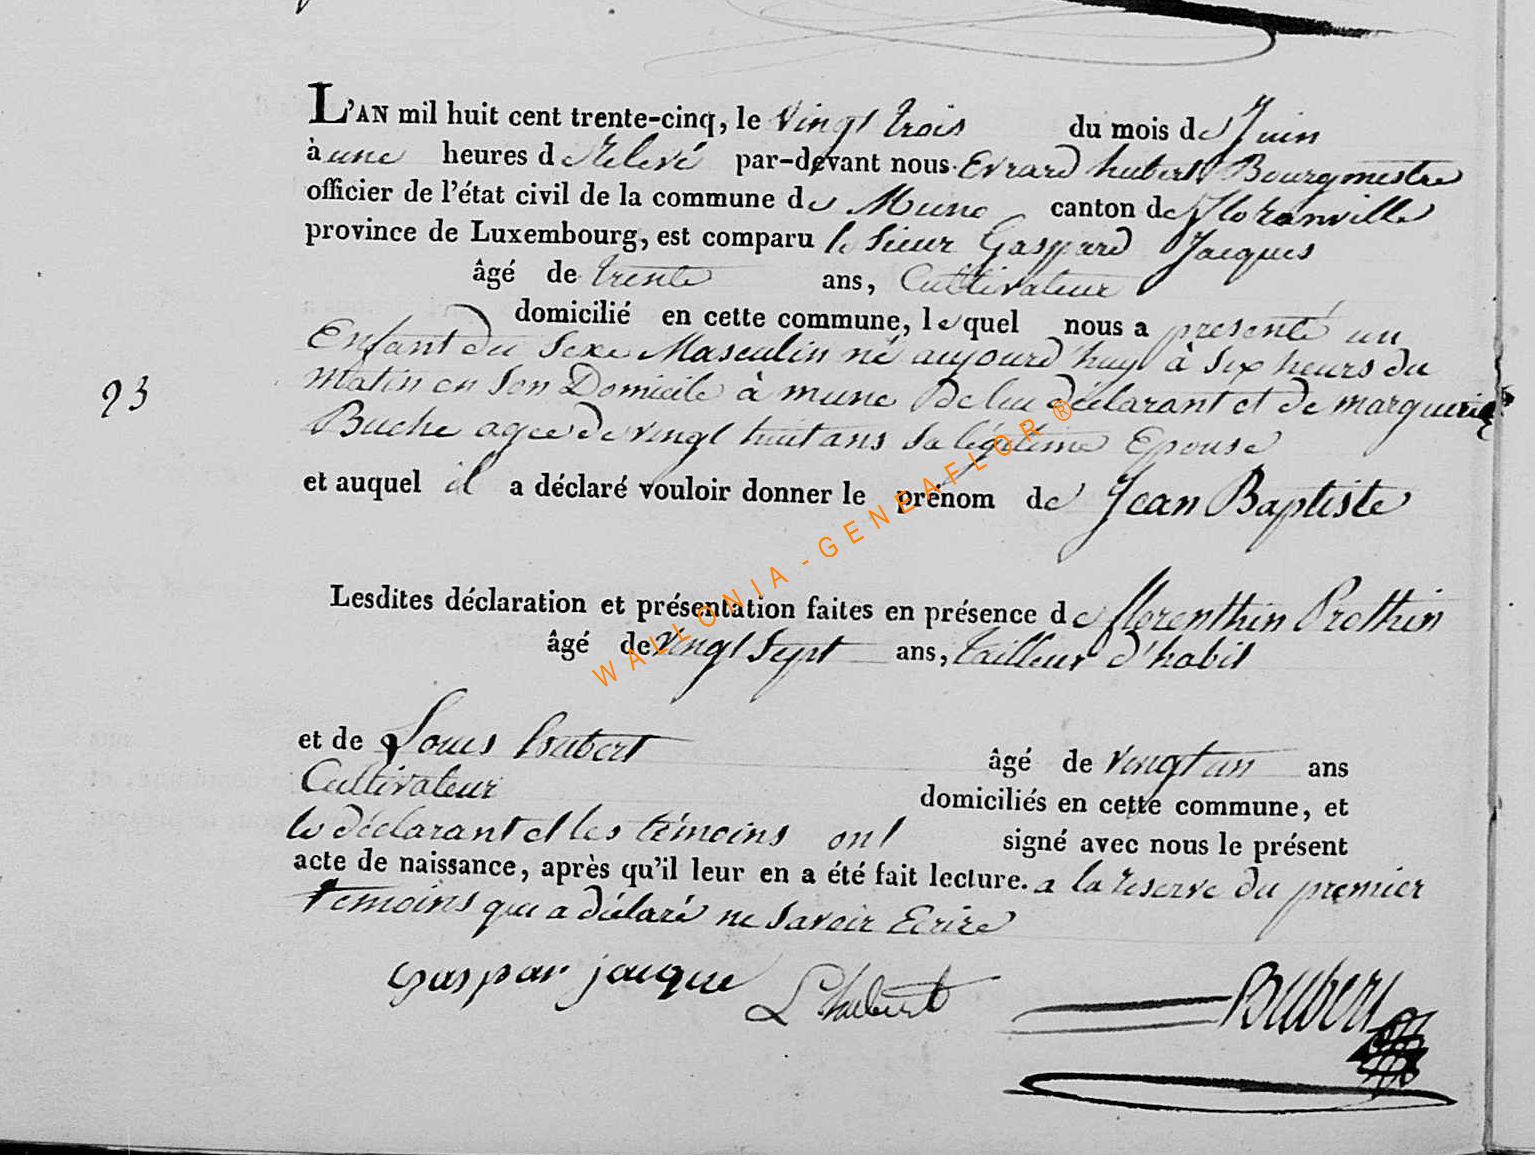 L'AN mil huit cent trente-cinq, le vingt trois du mois de Juin
à une heures de relevé par-devant nous Evrard hubert Bourgmestre
officier de l'état civil de la commune de Muno canton de florenville
province de Luxembourg, est comparu le sieur Gaspard Jacques
âgé de trente ans, Cultivateur
domicilié en cette commune, lequel nous a présenté un
Enfant du sexe Masculin né aujourd'huy à six heurs du
93 matin en son Domicile à muno De lui déclarant et de marguerite
Buche agee de vingt huit ans sa légitime Epouse
et auquel il a déclaré vouloir donner le prénom de Jean Baptiste
Lesdites déclaration et présentation faites en présence de florenthin Prothin
âgé de vingt sept ans, tailleur d'habit
et de Louis hubert âgé de vingt un ans
Cultivateur domiciliés en cette commune, et
le déclarant et les témoins ont signé avec nous le présent
acte de naissance, après qu'il leur en a été fait lecture. a la reserve du premier
temoins qui a déclaré ne savoir Ecrire
gaspar jacque L hubert
WALLONIA - GENEAFLOR ®